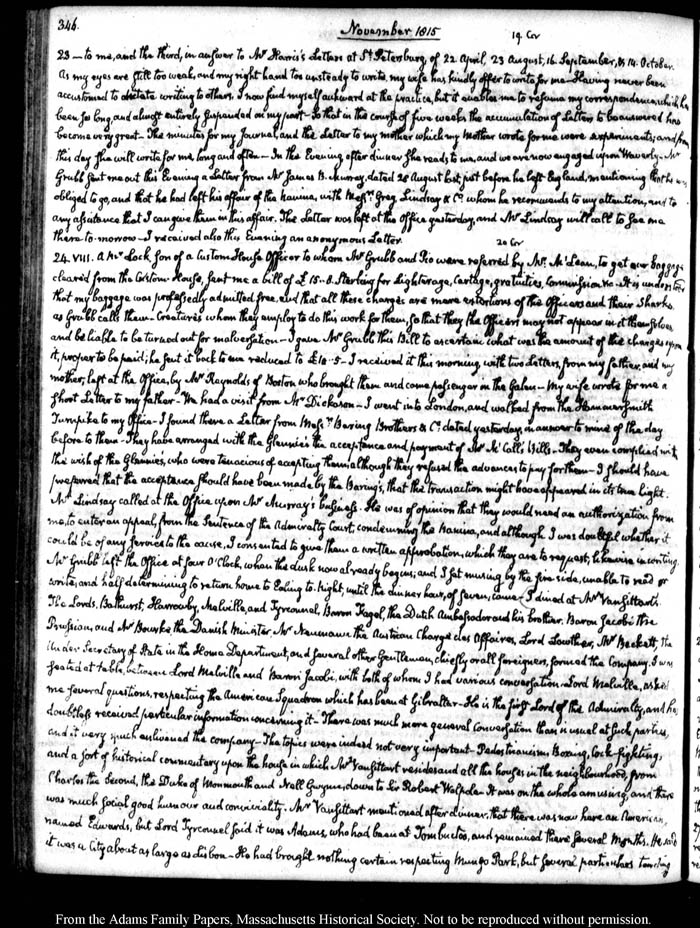 346.
November 1815
19. Cor
23 — to me, and the third, in answer to Mr Harris's Letters at St Petersburg, of 22 April, 23 August, 16. September, & 14. October.
As my eyes are still too weak, and my right hand too unsteady to write, my wife has kindly offer to write for me — Having never been
accustomed to dictate writing to others, I now find myself awkward at the practice, but it enables me to resume my correspondence, which has
been so long and almost entirely suspended on my part — So that in the course of five weeks the accumulation of Letters to be answered has
become very great — The minutes for my Journal, and the Letter to my mother which my Mother wrote for me were experiments; and from
this day she will write for me, long and often — In the Evening after dinner she reads to us, and we are now engaged upon Waverly — Mr
Grubb sent me out this Evening a Letter from Mr James B. Murray, dated 26 August last, just before he left England, mentioning that he was
obliged to go, and that he had left his affair of the Nanina, with Messrs Greg, Lindsay & Co. whom he recommends to my attention, and to
any assistance that I can give them in this affair. The Letter was left at the Office yesterday, and Mr Lindsay will call to see me
there to-morrow — I received also this Evening an anonymous Letter.
20 Cor
24. VIII. A Mr Lock, son of a Custom House Officer to whom Mr Grubb and I were referred by Mr McLean, to get our baggage
cleared from the Custom House, sent me a bill of £15..8. Sterling for Lighterage, Cartage, gratuities, Commission &c. It is understood
that my baggage was professedly admitted free, and that all these charges are mere extortions of the Officers and their Sharks,
as Grubb calls them — Creatures whom they employ to do this work for them, so that they the Officers may not appear in it themselves
and be liable to be turned out for malversation — I gave Mr Grubb this Bill to ascertain what was the amount of the charges upon
it, proper to be paid; he sent it back to me reduced to £10-5 — I received it this morning, with two Letters, from my father, and my
mother; left at the Office, by Mr Reynolds of Boston who brought them and came passenger in the Galen — My wife wrote for me a
short Letter to my father — We had a visit from Mr Dickason — I went into London, and walked from the Hammersmith
Turnpike to my Office — I found there a Letter from Messrs Baring Brothers & Co. dated yesterday, in answer to mine of the day
before to them — They have arranged with the Glennies the acceptance and payment of Mr McCall's Bills — They even complied with
the wish of the Glennies, who were tenacious of accepting them although they refused the advances to pay for them — I should have
preferred that the acceptance should have been made by the Baring's, that the transaction might have appeared in its true light.
Mr Lindsay called at the Office upon Mr Murray's business. He was of opinion that they would need an authorization from
me, to enter an appeal, from the Sentence of the Admiralty Court, condemning the Nanina, and although I was doubtful whether it
could be of any service to the cause, I consented to give them a written approbation, which they are to request, likewise in writing.
Mr Grubb left the Office at four O'Clock, when the dusk now already begins; and I sat musing by the fire side, unable to read or
write, and half determining to return home to Ealing to-night, until the dinner hour, of seven, came — I dined at Mr Vansittart's
The Lords, Bathurst, Harrowby, Melville, and Tyrconnel, Baron Fagel, the Dutch Ambassador and his brother, Baron Jacobi the
Prussian, and Mr Bourke the Danish Minister Mr Neumann the Austrian Chargé des Affaires, Lord Lowther, Mr Beckett, the
Under Secretary of State in the Home Department, and several other Gentlemen, chiefly or all foreigners, formed the Company, I was
seated at table, between Lord Melville and Baron Jacobi, with both of whom I had various conversation — Lord Melville, asked
me several questions, respecting the American Squadron which has been at Gibraltar — He is the first Lord of the Admiralty, and has
doubtless received particular information concerning it — There was much more general Conversation than is usual at such parties,
and it very much enlivened the company — The topics were indeed not very important — Pedestrianism Boxing, Cock-fighting,
and a sort of historical commentary upon the house in which Mr Vansittart resides and all the houses in the neighbourhood, from
Charles the Second, the Duke of Monmouth and Nell Gwynn, down to Sir Robert Walpole — It was on the whole amusing, and there
was much social good humour and conviviality. Mr Vansittart mentioned after dinner, that there was now here an American,
named Edwards, but Lord Tyrconnel said it was Adams, who had been at Tombuctoo, and remained there several Months. He said
it was a City about as large as Lisbon — He had brought nothing certain respecting Mungo Park, but several particulars tending
From the Adams Family Papers, Massachusetts Historical Society. Not to be reproduced without permission.